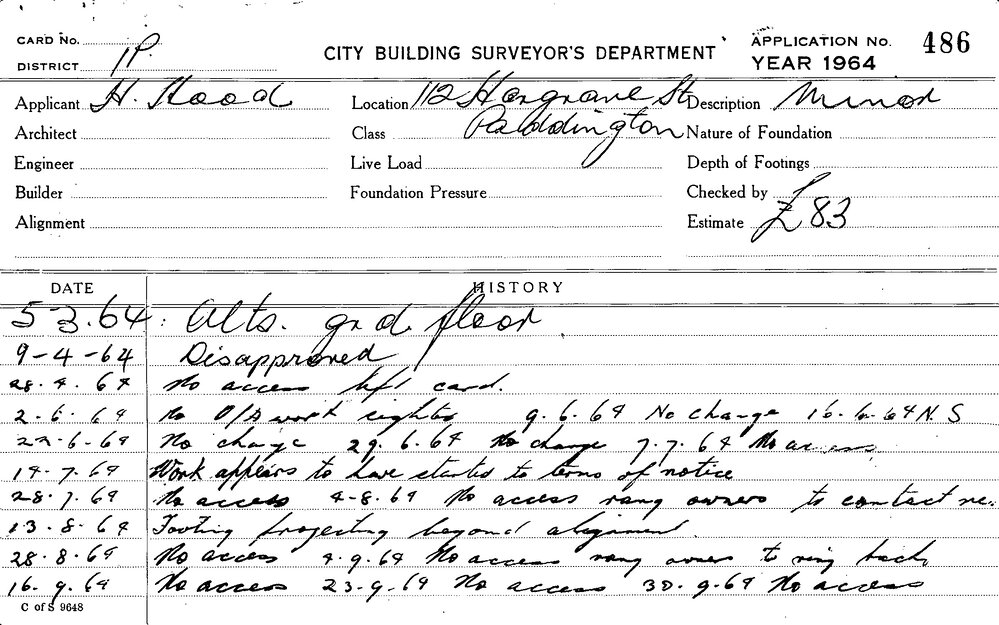 CARD No.
DISTRICT 1P
CITY BUILDING SURVEYOR'S DEPARTMENT
APPLICATION No. 486
YEAR 1964
Applicant H. Hood
Location 112 Hargrave St Paddington
Description Minor
Architect
Class
Nature of Foundation
Engineer
Live Load
Depth of Footings
Builder
Foundation Pressure
Checked by
Alignment
Estimate £83
DATE HISTORY
5 3.64. Alts. grd floor
9-4-64 Disapproved
28.4.64 No access left card.
2.6.64 No O/S work 9.6.64 No change 16.6.64 N.S
22.6.64 No change 29.6.64 No change 7.7.64 No access
14.7.64 Work appears to have started to terms of notice
28.7.64 No access 4-8.64 No access rang owners to contact me.
13.8.64 Footing projecting beyond alignment
28.8.64 No access 4.9.64 No access rang owner to ring back
16.9.64 No access 23-9.64 No access 30-9.64 No access
C of S 9648